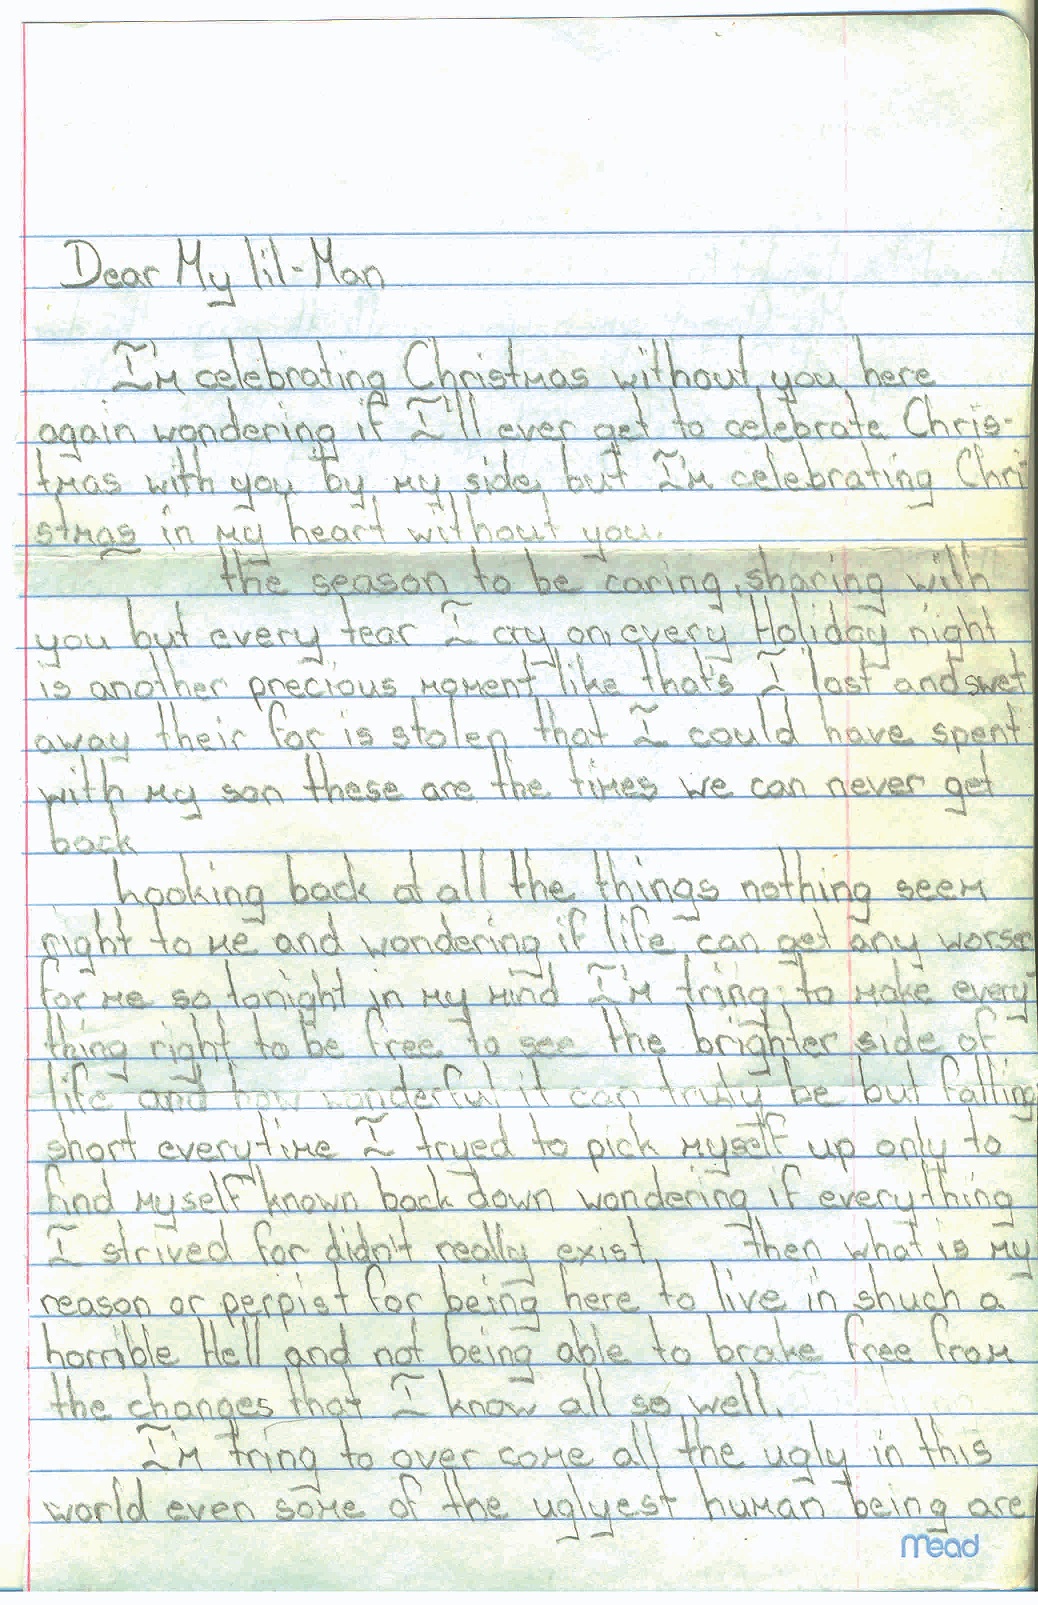 Dear My lil-Man
I'm celebrating Christmas without you here
again wondering if I'll ever get to celebrate Chris-
tmas with you by my side, but I'm celebrating Chri
stmas in my heart without you.
the season to be caring, sharing with
you but every tear I cry on every Holiday night
is another precious moment like that's I lost and swet
away their for is stolen that I could have spent
with my son these are the times we can never get
back
Looking back at all the things nothing seem
right to me and wondering if life can get any worser
for me so tonight in my mind I'm tring to make every
thing right to be free to see the brighter side of
life and how wonderful it can truly be but falling
short everytime I tryed to pick myself up only to
find myself known back down wondering if everything
I strived for didn't really exist then what is my
reason or perpist for being here to live in shuch a
horrible Hell and not being able to brake free from
the changes that I know all so well.
I'm tring to over come all the ugly in this
world even some of the uglyest human being are
Mead